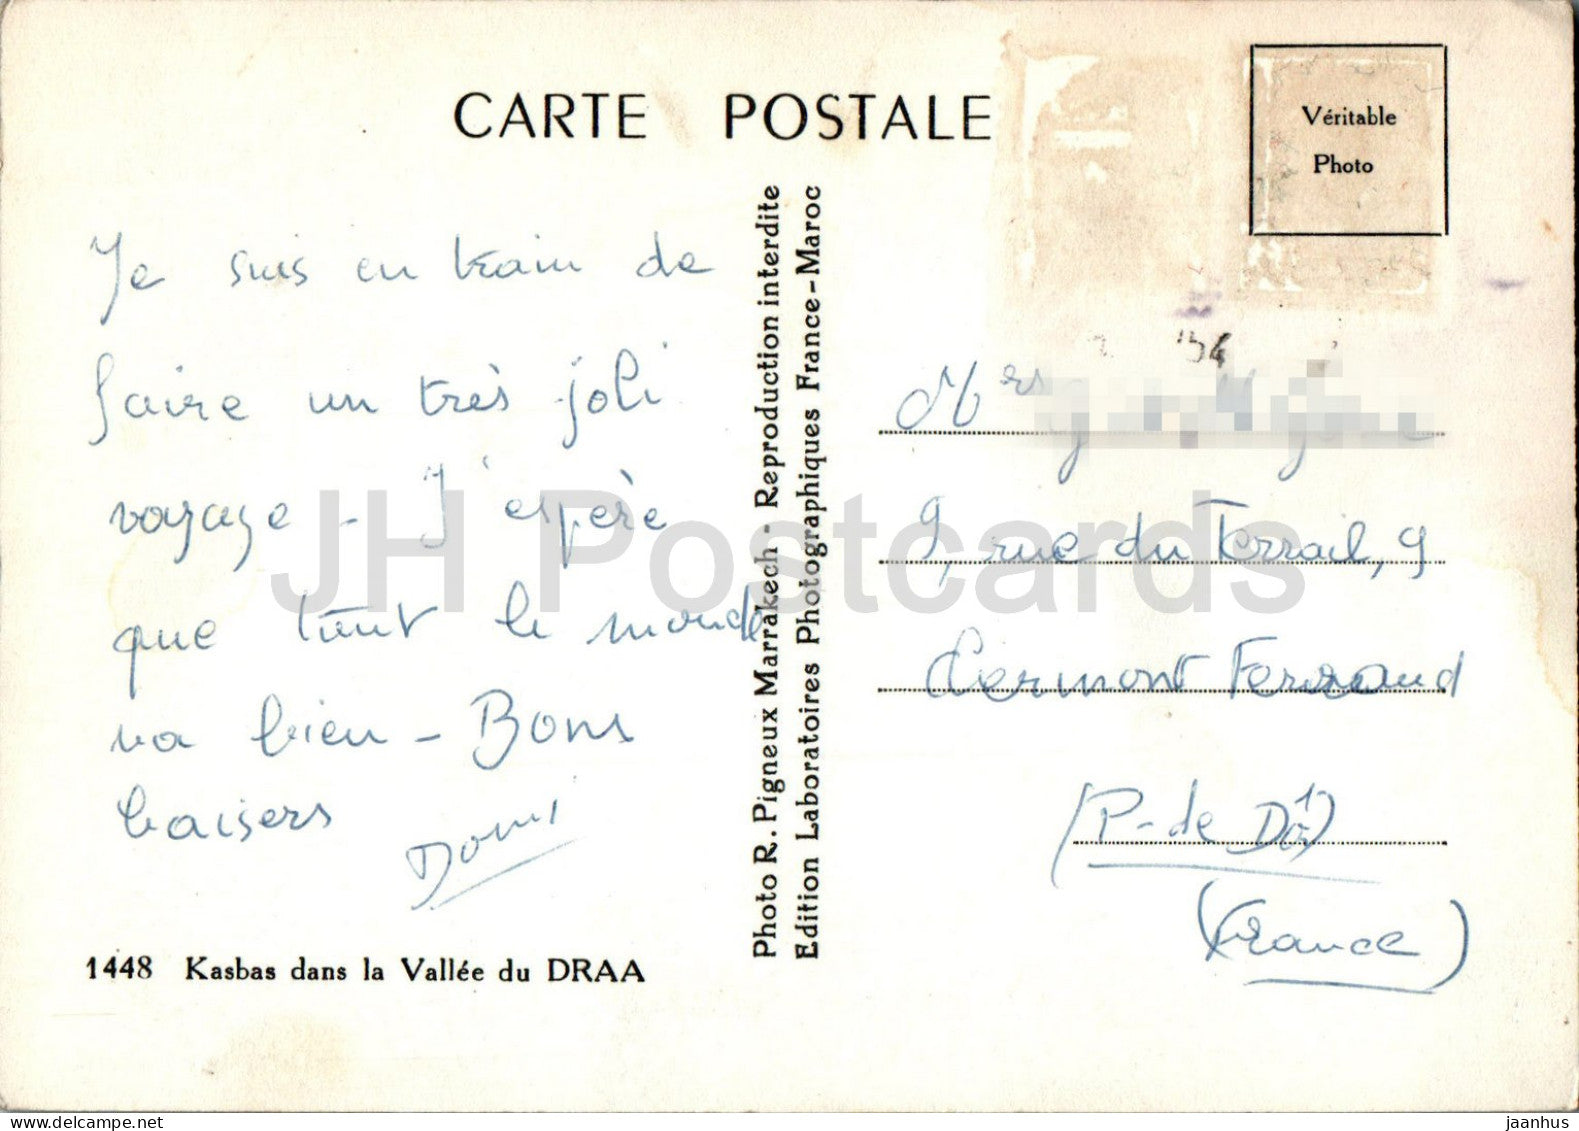 CARTE POSTALE
Véritable
Photo
Je suis en train de
faire un très joli
voyage - J'espère
que tout le monde
va bien - Bons
baisers
Domi
1448 Kasbas dans la Vallée du DRAA
Photo R. Pigneux Marrakech - Reproduction interdite
Edition Laboratoires Photographiques France-Maroc
54
Mrs
9, rue du Terrail, 9
Clermont Ferrand
(P-de Dô)
(France)
JH Postcards
jaanhus